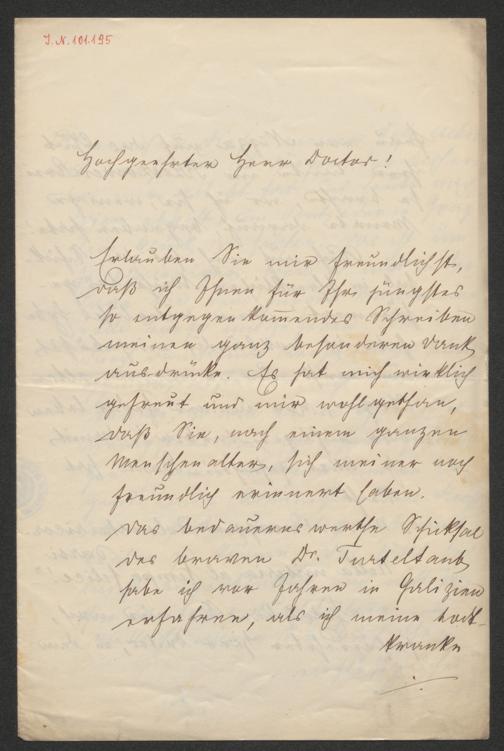 J.N. 101.195
Hochgeehrter Herr Doctor!
Erlauben Sie mir freundlichst,
daß ich Ihnen für Ihr jüngstes
so entgegenkom̄endes Schreiben
meinen ganz besonderen Dank
ausdrücke. Es hat mich wirklich
gefreut und mir wohlgethan,
daß Sie, nach einem ganzen
Menschenalter, sich meiner noch
freundlich erinnert haben.
Das bedauernswerthe Schicksal
des braven Dr. Turteltaub
habe ich vor Jahren in Galizien
erfahren, als ich meine todt-
kranke